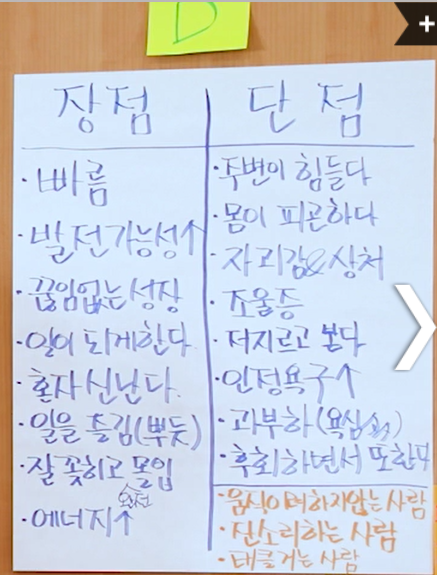 D
장점
단점
· 빠름
· 발전가능성↑
· 끊임없는 성장
· 일이 되게한다
· 혼자 신난다.
· 일을 즐김(뿌듯)
· 잘 꽂히고 몰입
· 에너지↑
· 주변이 힘들다
· 몸이 피곤하다
· 자괴감&상처
· 조울증
· 저지르고 본다
· 인정욕구↑
· 과부하(욕심
· 후회하면서 또한다
· 움직이려하지않는 사람
· 잔소리하는 사람
· 태클거는 사람